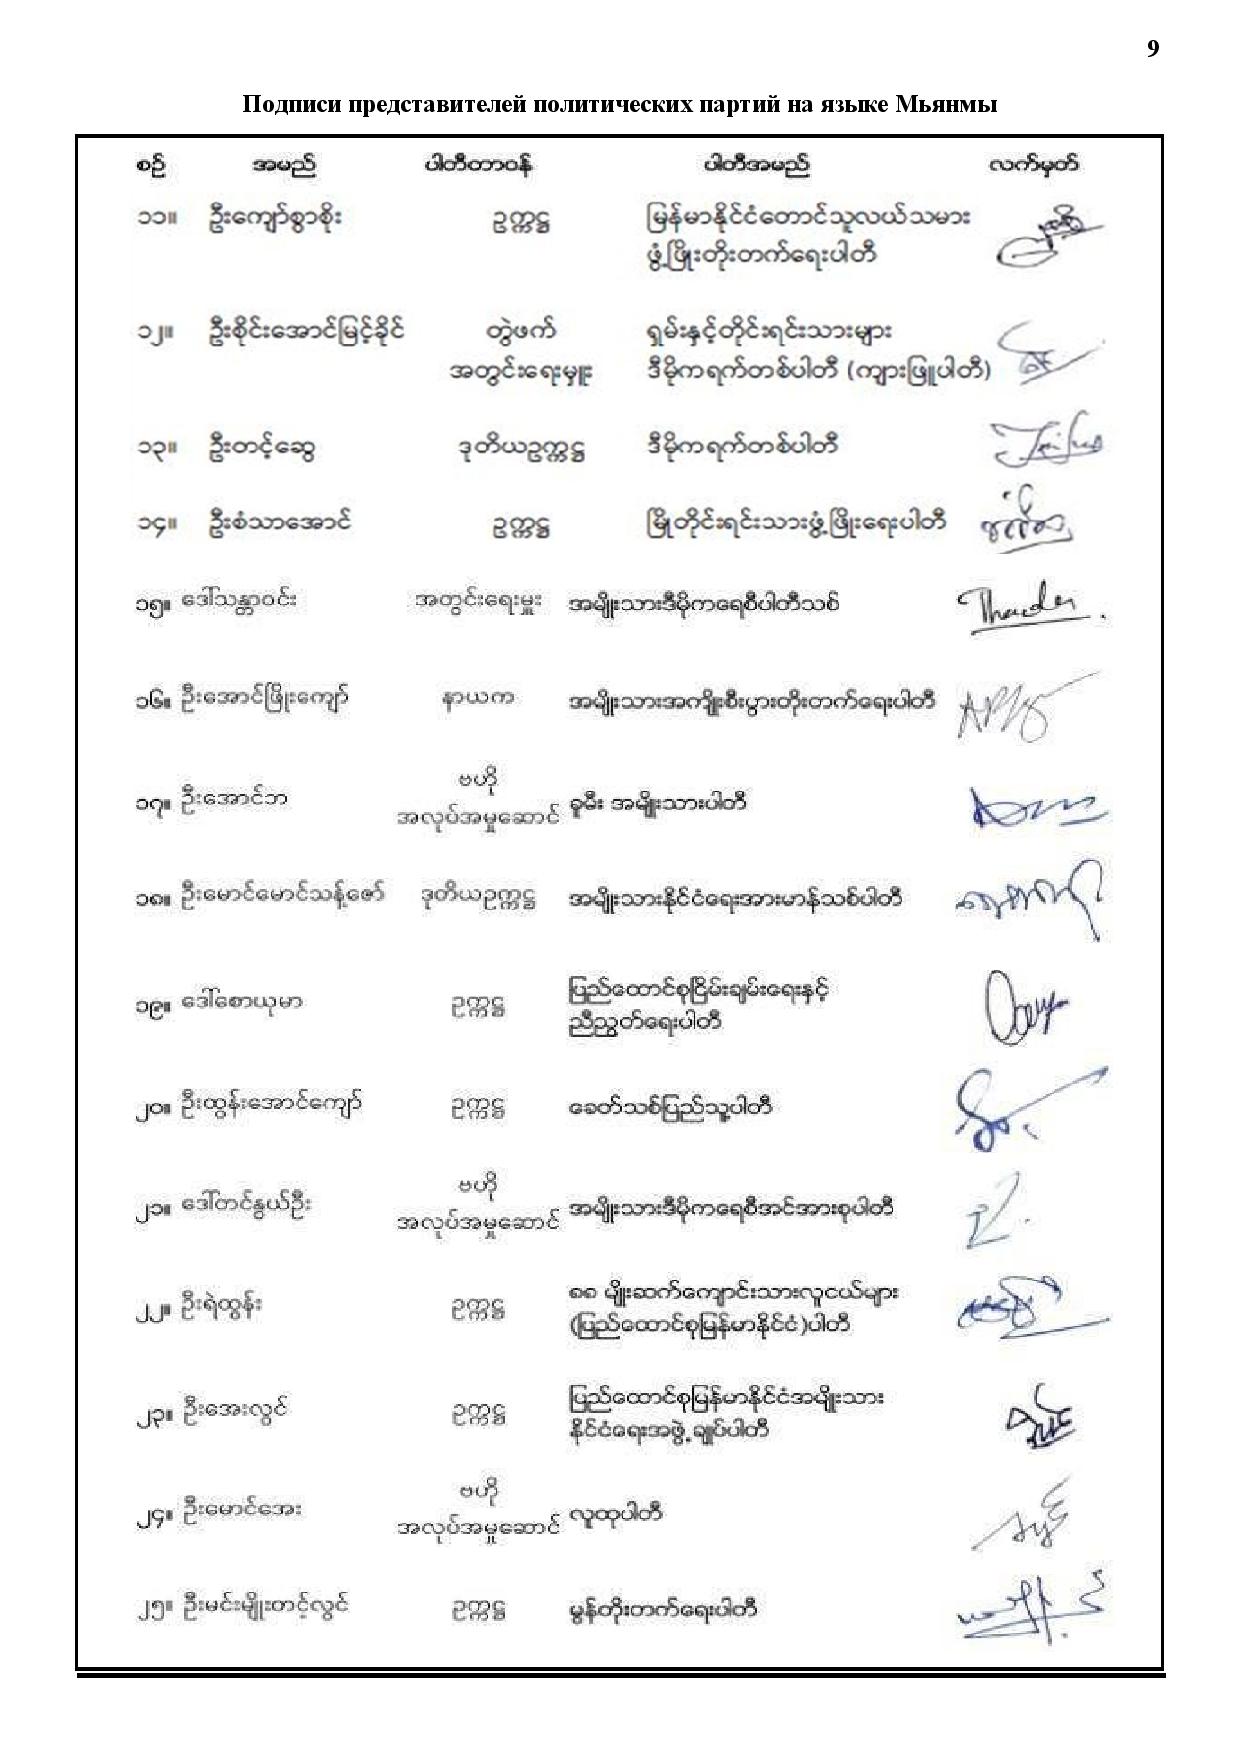 9
Подписи представителей политических партий на языке Мьянмы
စဉ် အမည် ပါတီတာဝန် ပါတီအမည် လက်မှတ်
၁၁။ ဦးကျော်စွာစိုး ဥက္ကဋ္ဌ မြန်မာနိုင်ငံတောင်သူလယ်သမား
ဖွံ့ဖြိုးတိုးတက်ရေးပါတီ
၁၂။ ဦးစိုင်းအောင်မြင့်ခိုင် တွဲဖက် ရှမ်းနှင့်တိုင်းရင်းသားများ
အတွင်းရေးမှူး ဒီမိုကရက်တစ်ပါတီ (ကျားဖြူပါတီ)
၁၃။ ဦးတင့်ဆွေ ဒုတိယဥက္ကဋ္ဌ ဒီမိုကရက်တစ်ပါတီ
၁၄။ ဦးစံသာအောင် ဥက္ကဋ္ဌ မြိုတိုင်းရင်းသားဖွံ့ဖြိုးရေးပါတီ
၁၅။ ဒေါ်သန္တာဝင်း အတွင်းရေးမှူး အမျိုးသားဒီမိုကရေစီပါတီသစ်
၁၆။ ဦးအောင်ဖြိုးကျော် နာယက အမျိုးသားအကျိုးစီးပွားတိုးတက်ရေးပါတီ
၁၇။ ဦးအောင်ဘ ဗဟို
အလုပ်အမှုဆောင် ခူမီး အမျိုးသားပါတီ
၁၈။ ဦးမောင်မောင်သန့်ဇော် ဒုတိယဥက္ကဋ္ဌ အမျိုးသားနိုင်ငံရေးအားမာန်သစ်ပါတီ
၁၉။ ဒေါ်စောယုမာ ဥက္ကဋ္ဌ ပြည်ထောင်စုငြိမ်းချမ်းရေးနှင့်
ညီညွတ်ရေးပါတီ
၂၀။ ဦးထွန်းအောင်ကျော် ဥက္ကဋ္ဌ ခေတ်သစ်ပြည်သူ့ပါတီ
၂၁။ ဒေါ်တင်နွယ်ဦး ဗဟို
အလုပ်အမှုဆောင် အမျိုးသားဒီမိုကရေစီအင်အားစုပါတီ
၂၂။ ဦးရဲထွန်း ဥက္ကဋ္ဌ ၈၈ မျိုးဆက်ကျောင်းသားလူငယ်များ
(ပြည်ထောင်စုမြန်မာနိုင်ငံ)ပါတီ
၂၃။ ဦးအေးလွင် ဥက္ကဋ္ဌ ပြည်ထောင်စုမြန်မာနိုင်ငံအမျိုးသား
နိုင်ငံရေးအဖွဲ့ချုပ်ပါတီ
၂၄။ ဦးမောင်အေး ဗဟို
အလုပ်အမှုဆောင် လူထုပါတီ
၂၅။ ဦးမင်းမျိုးတင့်လွင် ဥက္ကဋ္ဌ မွန်တိုးတက်ရေးပါတီ